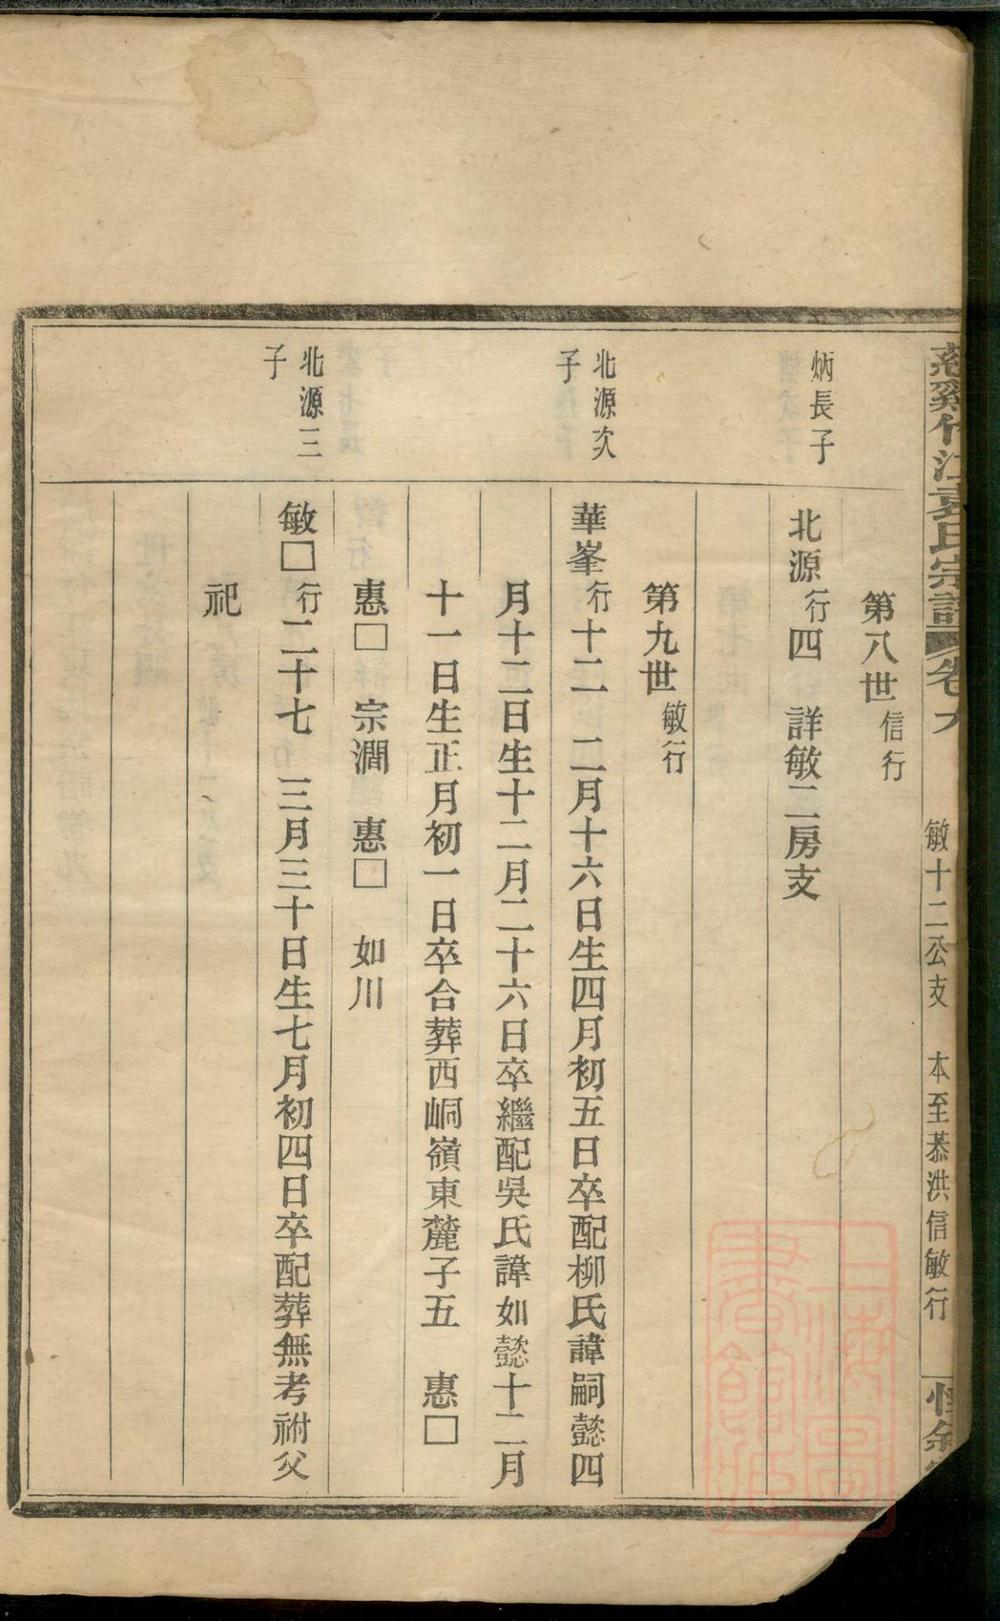 慈谿竹江袁氏宗譜 卷六 敏十二公支 本至恭洪信敏行
第八世信行
炳長子
北源行四 詳敏二房支
第九世敏行
北源次子
華峯行十二 二月十六日生四月初五日卒配柳氏諱嗣懿四
月十二日生十二月二十六日卒繼配吳氏諱如懿十二月
十一日生正月初一日卒合葬西峒嶺東麓子五 惠□
惠□ 宗澗 惠□ 如川
北源三子
敏□行二十七 三月三十日生七月初四日卒配葬無考祔父
祀
上海圖書館藏